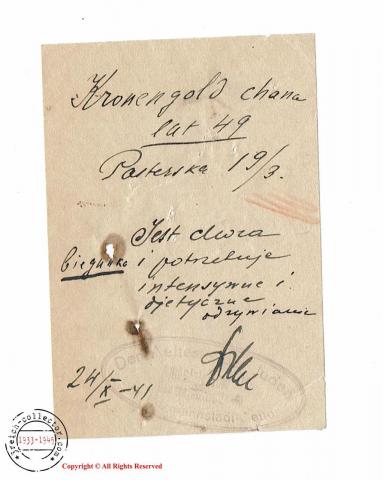 Kronengold Chana
lat 49
Pasterska 19/3.
Jest chora
biegunka i potrzebuje
intensywne i
djetyczne
odżywianie
24/X-41
Der Aelteste der Juden
3reich-collector.com
1933-1945
Copyright © All Rights Reserved